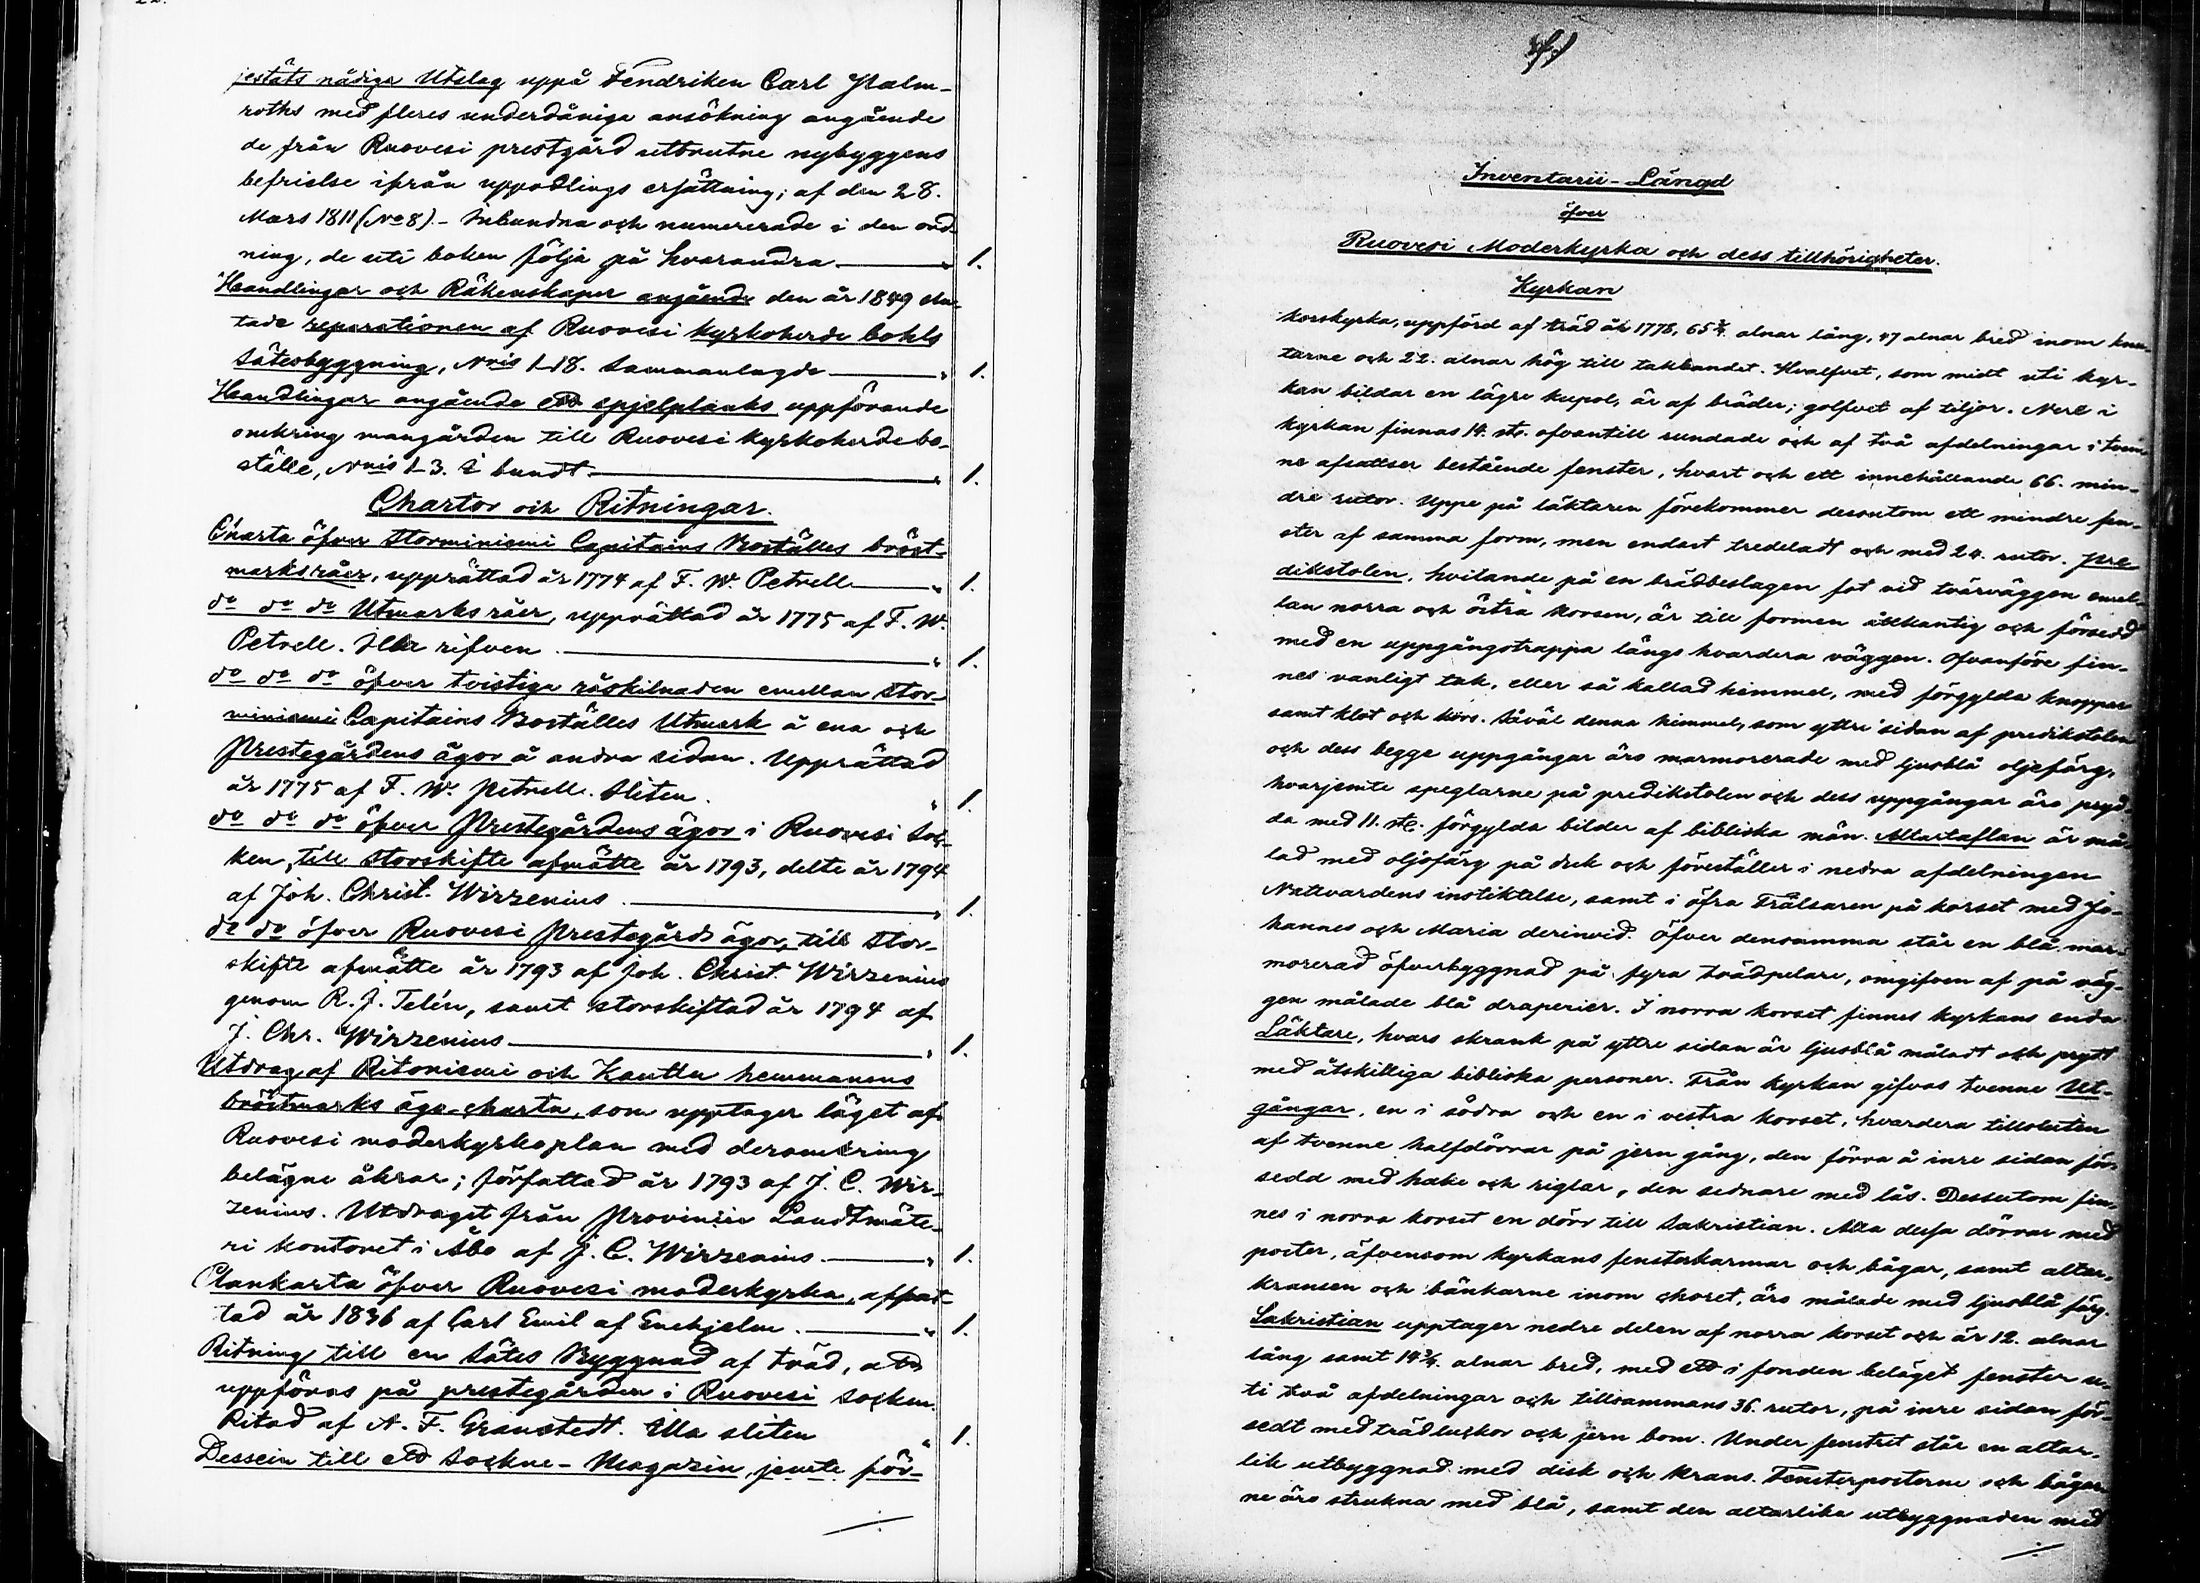 jestäts nådiga Utslag uppå Fendriken Carl Malm-
roths med fleres underdåniga ansökning angående
de från Ruovesi prestgård utbrutne nybyggens
befrielse ifrån uppodlings ersättning; af den 28.
Mars 1811 (No 8). - Inbundna och numererade i den ord-
ning, de uti boken följa på hvarandra — " 1.
Handlingar och Räkenskaper angående den år 1849 slu-
tade reparationen af Ruovesi Kyrkoherde bohls
Sätesbyggning, Nris 1-18. Sammanlagde — " 1.
Handlingar angående ett spjelplanks uppförande
omkring mangården till Ruovesi Kyrkoherdebo-
ställe, Nris 1-3. i bundt — " 1.
Chartor och Ritningar.
Charta öfver Storminiemi Capitains Boställes bröst-
marks råer, upprättad år 1774 af F. W. Petrell — " 1.
do do do Utmarks råer, upprättad år 1775 af F. W.
Petrell. Illa rifven. — " 1.
do do do öfver tvistiga råskilnaden emellan Stor-
miniemi Capitains Boställes Utmark å ena och
Prestegårdens ägor å andra sidan. Upprättad
år 1775 af F. W. Petrell. Sliten. " 1.
do do do öfver Prestegårdens ägor i Ruovesi Soc-
ken, till Storskifte afmätte år 1793, delte år 1794
af Joh. Christ. Wirzenius. — " 1.
do do öfver Ruovesi Prestegårds ägor, till Stor-
skifte afmätte år 1793 af Joh. Christ. Wirzenius
genom R. J. Telén, samt Storskiftad år 1794 af
J. Chr. Wirzenius — " 1.
Utdrag af Ritoniemi och Kauttu hemmanens
bröstmarks äge-charta, som upptager läget af
Ruovesi moderkyrkoplan med deromkring
belägne åkrar; författad år 1793 af J. C. Wir-
zenius. Utdraget från Provincie Landtmäte-
ri kontoret i Åbo af J. C. Wirzenius. — " 1.
Plankarta öfver Ruovesi moderkyrka, affat-
tad år 1836 af Carl Emil af Enehjelm. — " 1.
Ritning till en Sätes Byggnad af träd, att
uppföras på prestegården i Ruovesi socken.
Ritad af A. F. Granstedt. Illa sliten " 1.
Dessein till ett Sockne-Magazin, jemte för-
Inventarii-Längd
öfver
Ruovesi Moderkyrka och dess tillhörigheter.
Kyrkan
korskyrka, uppförd af träd år 1778, 65¾ alnar lång, 47 alnar bred inom knu-
tarne och 22. alnar hög till takbandet. Hvalfvet, som midt uti kyr-
kan bildar en lägre kupol, är af bräder; golfvet af tiljor. Nere i
kyrkan finnas 14. st. ofvantill rundade och af två afdelningar i tven-
ne afsattser bestående fenster, hvart och ett innehållande 66. min-
dre rutor. Uppe på läktaren förekommer dessutom ett mindre fen-
ster af samma form, men endast tredeladt och med 24. rutor. Pre-
dikstolen, hvilande på en brädbeslagen fot vid tvärväggen emel-
lan norra och östra korsen, är till formen åttkantig och försedd
med en uppgångstrappa längs hvardera väggen. Ofvanföre fin-
nes vanligt tak, eller så kallad himmel, med förgylda knoppar
samt klot och kors. Såväl denna himmel, som yttre sidan af predikstolen
och dess begge uppgångar äro marmorerade med ljusblå oljefärg,
hvarjemte speglarne på predikstolen och dess uppgångar äro pryd-
da med 11. st. förgylda bilder af bibliska män. Altartaflan är må-
lad med oljefärg på duk och föreställer i nedra afdelningen
Nattvardens instiktelse, samt i öfra Frälsaren på korset med Jo-
hannes och Maria derinvid. Öfver densamma står en blå mar-
morerad öfverbyggnad på fyra trädpelare, omgifven af på väg-
gen målade blå draperier. I norra korset finnes kyrkans enda
Läktare, hvars skrank på yttre sidan är ljusblå måladt och prytt
med åtskilliga bibliska personer. Från kyrkan gifvas tvenne Ut-
gångar, en i södra och en i vestra korset, hvardera tillsluten
af tvenne halfdörrar på jern gång, den förra å inre sidan för-
sedd med hake och riglar, den sednare med lås. Dessutom fin-
nes i norra korset en dörr till Sakristian. Alla dessa dörrar med
poster, äfvensom kyrkans fensterkarmar och bågar, samt altar-
kransen och bänkarne inom choret, äro målade med ljusblå färg.
Sakristian upptager nedre delen af norra korset och är 12. alnar
lång samt 14¾ alnar bred, med ett i fonden beläget fenster u-
ti två afdelningar och tillsammans 36. rutor, på inre sidan för-
sedt med trädluckor och jern bom. Under fenstret står en altar-
lik utbyggnad med disk och krans. Fensterposterne och bågar-
ne äro strukna med blå, samt den altarlika utbyggnaden med